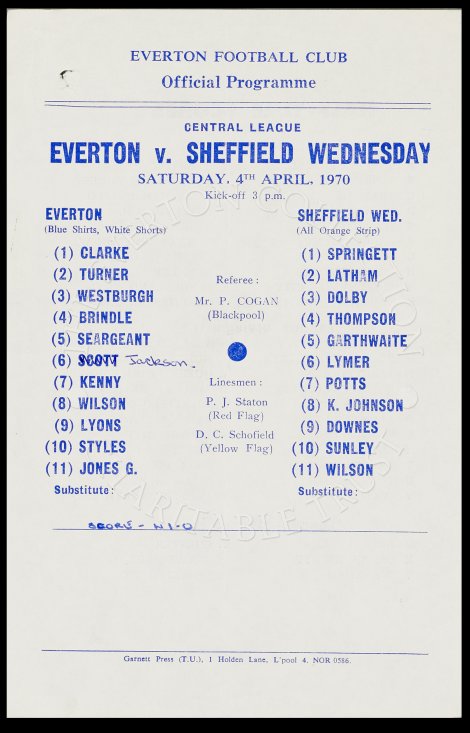 EVERTON FOOTBALL CLUB
Official Programme
CENTRAL LEAGUE
EVERTON v. SHEFFIELD WEDNESDAY
SATURDAY, 4TH APRIL, 1970
Kick-off 3 p.m.
EVERTON
(Blue Shirts, White Shorts)
(1) CLARKE
(2) TURNER
(3) WESTBURGH
(4) BRINDLE
(5) SEARGEANT
(6) SCOTT Jackson.
(7) KENNY
(8) WILSON
(9) LYONS
(10) STYLES
(11) JONES G.
Substitute:
Referee:
Mr. P. COGAN
(Blackpool)
Linesmen:
P. J. Staton
(Red Flag)
D. C. Schofield
(Yellow Flag)
SHEFFIELD WED.
(All Orange Strip)
(1) SPRINGETT
(2) LATHAM
(3) DOLBY
(4) THOMPSON
(5) GARTHWAITE
(6) LYMER
(7) POTTS
(8) K. JOHNSON
(9) DOWNES
(10) SUNLEY
(11) WILSON
Substitute:
SCORE - N 1-0
Garnett Press (T.U.), 1 Holden Lane, L'pool 4. NOR 0586.
EVERTON COLLECTION
CHARITABLE TRUST